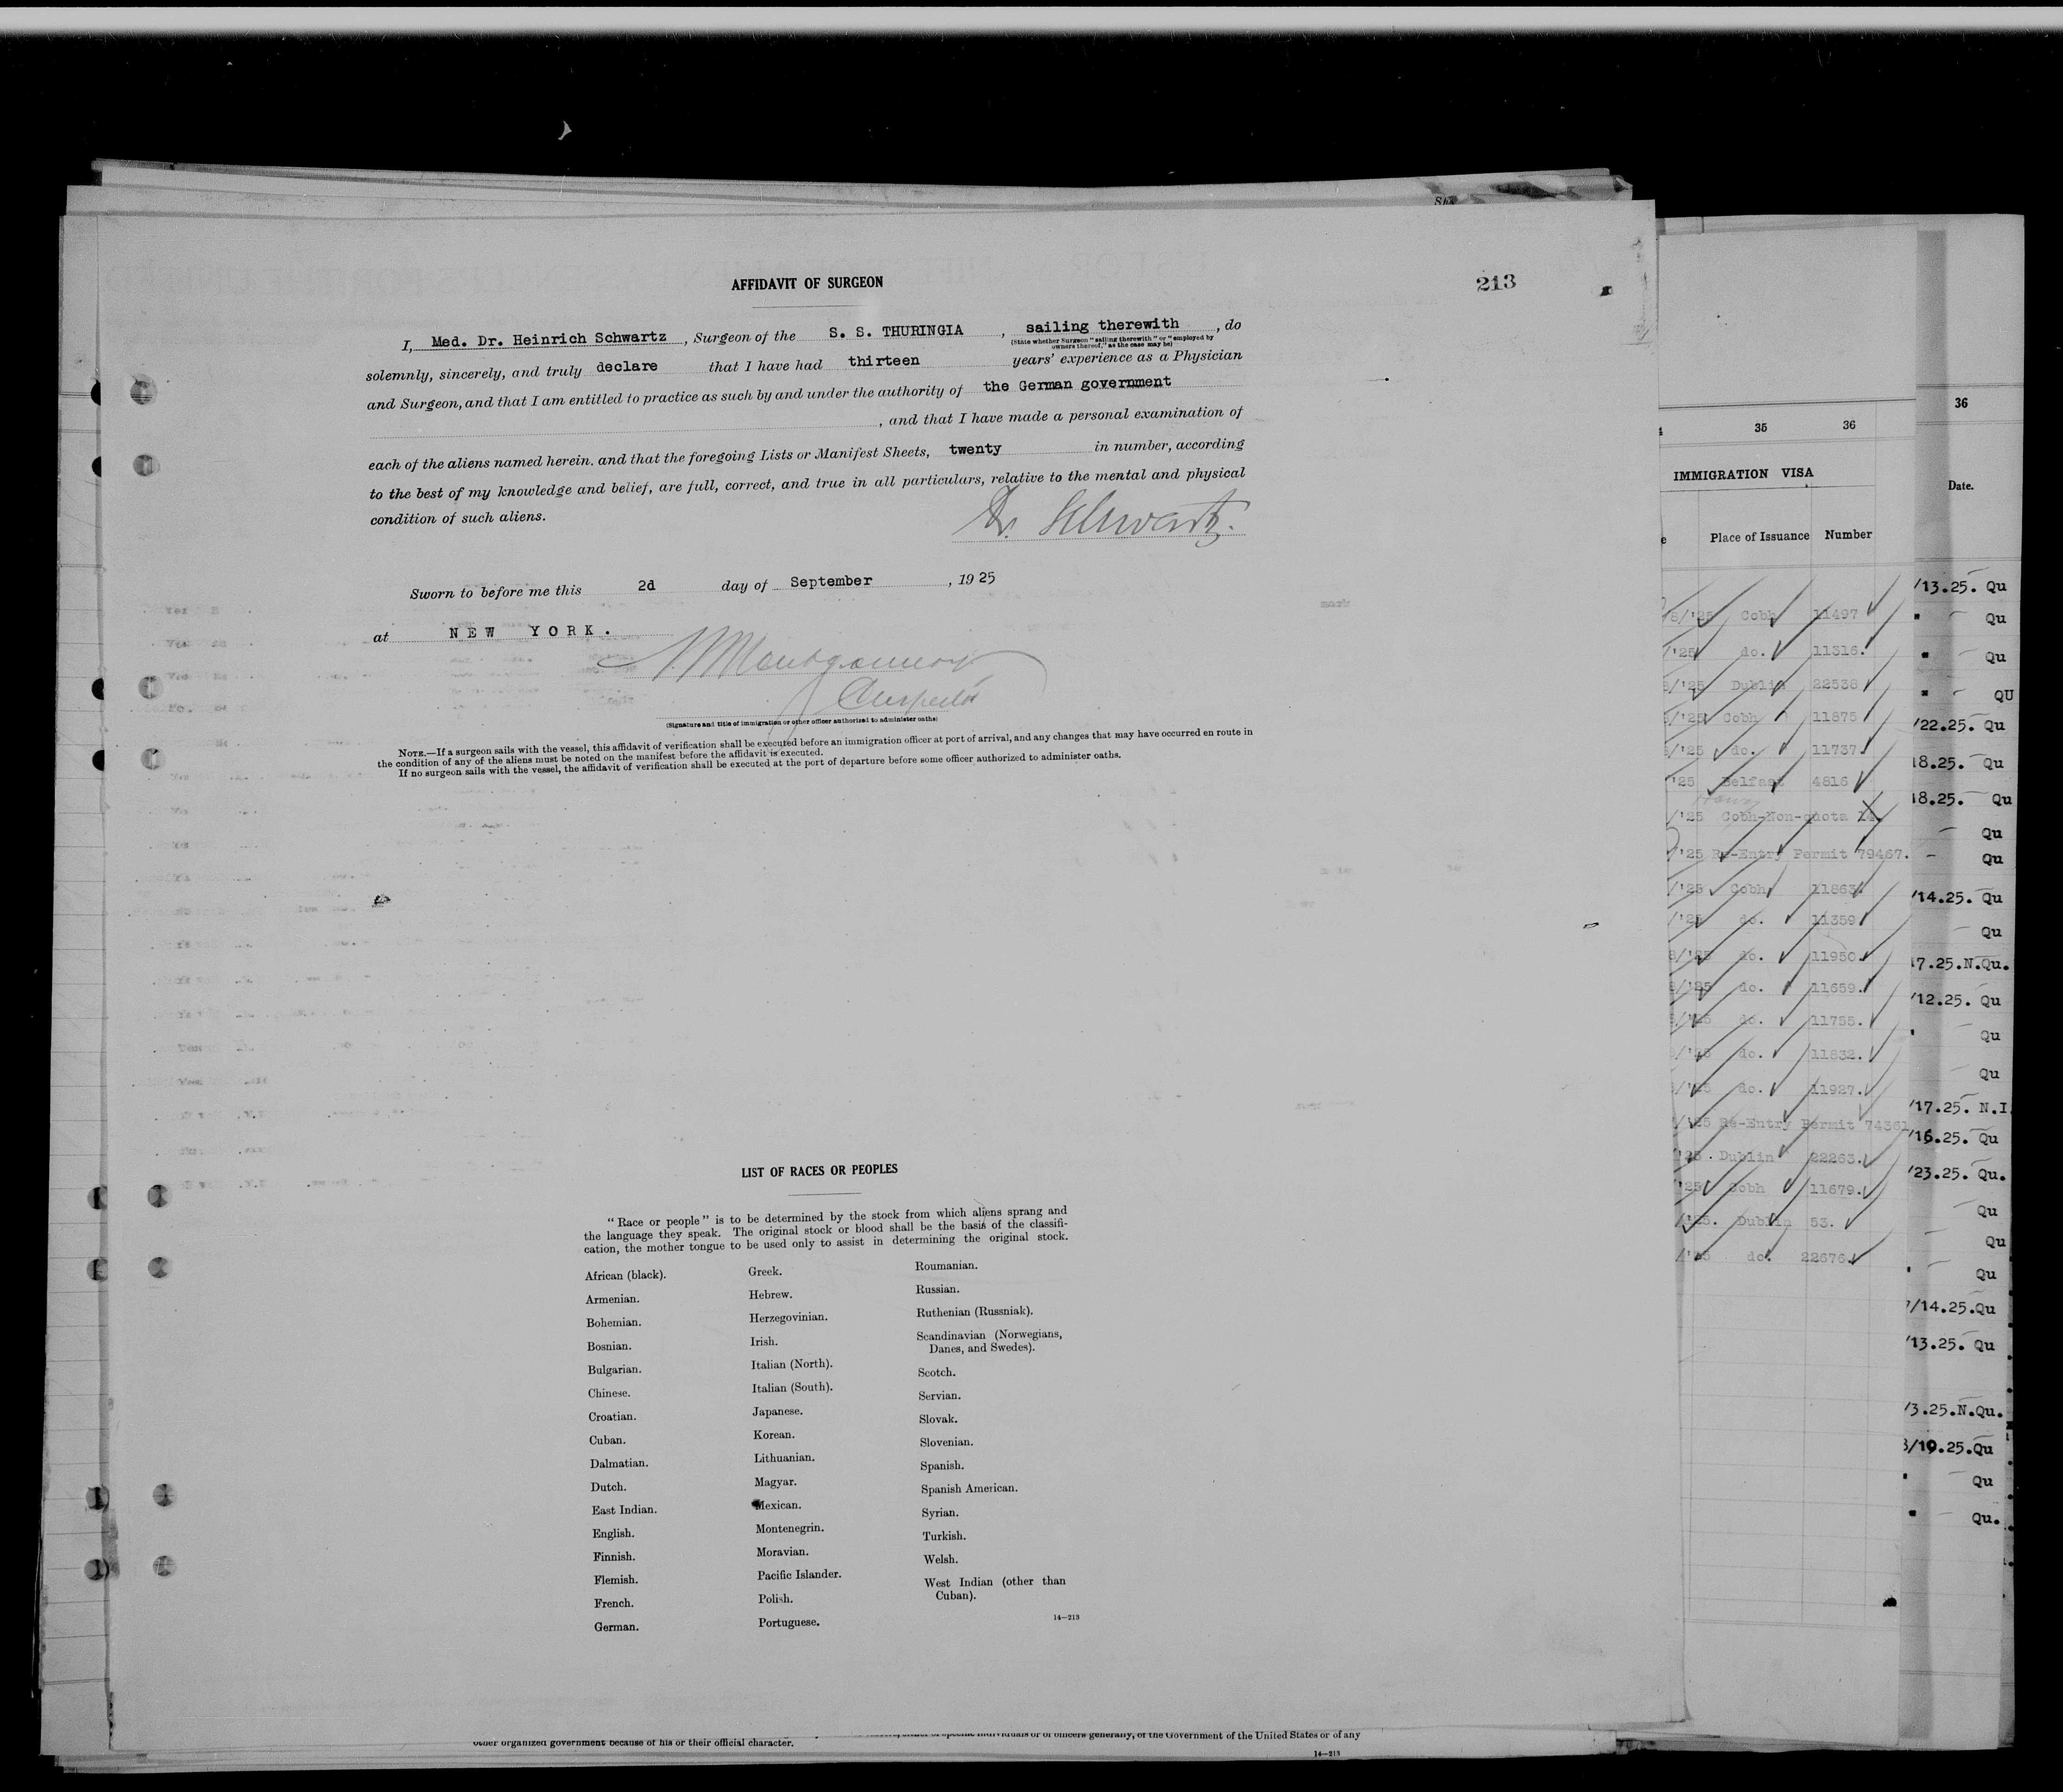 AFFIDAVIT OF SURGEON
213
I, Med. Dr. Heinrich Schwartz, Surgeon of the S. S. THURINGIA, sailing therewith, do
(State whether Surgeon "sailing therewith" or "employed by
owners thereof," as the case may be)
solemnly, sincerely, and truly declare that I have had thirteen years' experience as a Physician
and Surgeon, and that I am entitled to practice as such by and under the authority of the German government
, and that I have made a personal examination of
each of the aliens named herein. and that the foregoing Lists or Manifest Sheets, twenty in number, according
to the best of my knowledge and belief, are full, correct, and true in all particulars, relative to the mental and physical
condition of such aliens.
Dr. Schwartz.
Sworn to before me this 2d day of September, 1925
at NEW YORK.
Montgomery
Inspector
(Signature and title of immigration or other officer authorized to administer oaths)
NOTE.—If a surgeon sails with the vessel, this affidavit of verification shall be executed before an immigration officer at port of arrival, and any changes that may have occurred en route in
the condition of any of the aliens must be noted on the manifest before the affidavit is executed.
If no surgeon sails with the vessel, the affidavit of verification shall be executed at the port of departure before some officer authorized to administer oaths.
LIST OF RACES OR PEOPLES
"Race or people" is to be determined by the stock from which aliens sprang and
the language they speak. The original stock or blood shall be the basis of the classifi-
cation, the mother tongue to be used only to assist in determining the original stock.
African (black).
Armenian.
Bohemian.
Bosnian.
Bulgarian.
Chinese.
Croatian.
Cuban.
Dalmatian.
Dutch.
East Indian.
English.
Finnish.
Flemish.
French.
German.
Greek.
Hebrew.
Herzegovinian.
Irish.
Italian (North).
Italian (South).
Japanese.
Korean.
Lithuanian.
Magyar.
Mexican.
Montenegrin.
Moravian.
Pacific Islander.
Polish.
Portuguese.
Roumanian.
Russian.
Ruthenian (Russniak).
Scandinavian (Norwegians,
Danes, and Swedes).
Scotch.
Servian.
Slovak.
Slovenian.
Spanish.
Spanish American.
Syrian.
Turkish.
Welsh.
West Indian (other than
Cuban).
14—213
individuals or of officers generally, of the Government of the United States or of any
other organized government because of his or their official character.
14—213
35 36
IMMIGRATION VISA
Place of Issuance Number
8/'25 Cobh 11497
/'25 do. 11316.
8/'25 Dublin 22538
/'25 Cobh 11875
/'25 do. 11737.
'25 Belfast 4816
/'25 Cobh-Non-quota
/'25 Re-Entry Permit 79467.
/'25 Cobh 11863.
/'25 do. 11359
8/'25 do. 11950.
8/'25 do. 11659.
/'25 do. 11755.
/'25 do. 11832.
/'25 do. 11927.
/'25 Re-Entry Permit 74361
'25 Dublin 22263.
'25 Cobh 11679.
/'25. Dublin 53.
/'25 do. 22676.
36
Date.
/13.25. Qu
" Qu
" Qu
" QU
/22.25. Qu
18.25. Qu
18.25. Qu
Qu
Qu
/14.25. Qu
Qu
17.25.N.Qu.
/12.25. Qu
Qu
Qu
/17.25. N.I
/16.25. Qu
/23.25. Qu.
Qu
Qu
Qu
7/14.25.Qu
/13.25. Qu
/3.25.N.Qu.
8/19.25.Qu
" Qu
" Qu.